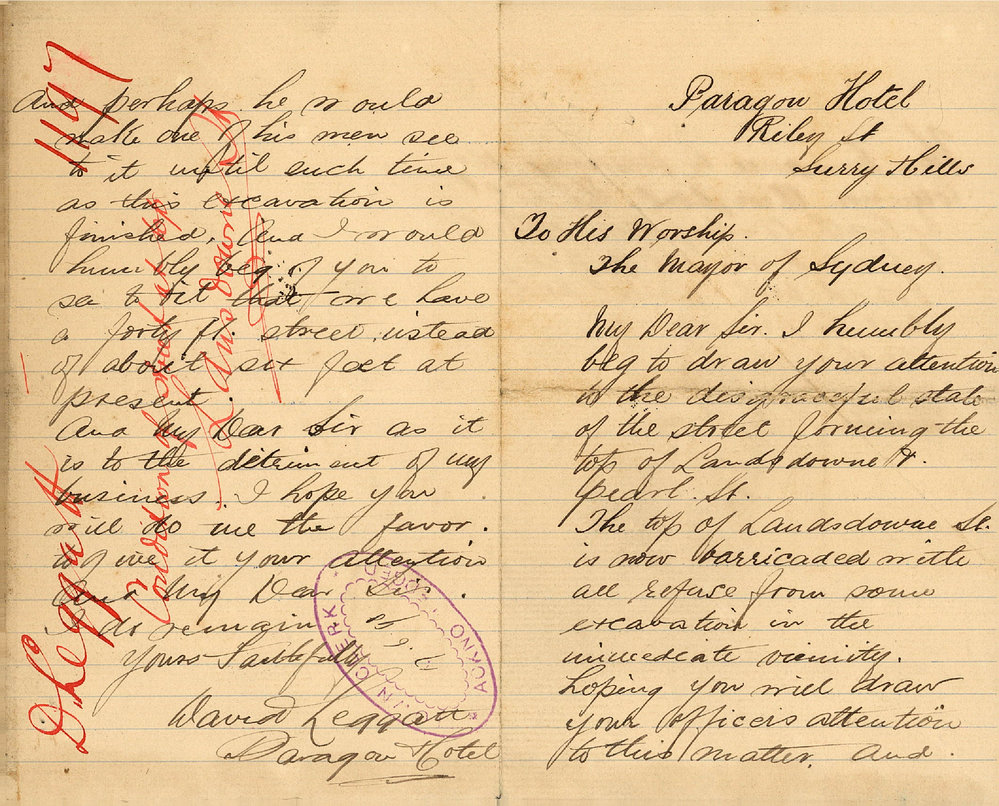 Paragon Hotel
Riley St
Surry Hills
To His Worship.
The Mayor of Sydney.
My Dear Sir. I humbly
beg to draw your attention
to the disgraceful state
of the street forming the
top of Landsdowne &
pearl. St.
The top of Landsdowne St.
is now barricaded with
all refuse from some
excavation in the
immediate vicinity.
hoping you will draw
your officers attention
to this matter. and.
And perhaps he would
make one of his men see
to it until such time
as this excavation is
finished. And I would
humbly beg of you to
see to it that we have
a forty ft. street, instead
of about six feet at
present.
And My Dear Sir as it
is to the detriment of my
business. I hope you
will do me the favor.
to give it your attention
And My Dear Sir.
I do remain
Yours Faithfully
David Leggatt
Paragon Hotel
D Leggatt
1197
Condition of street top
Lansdowne St
CLERK
ACKNO